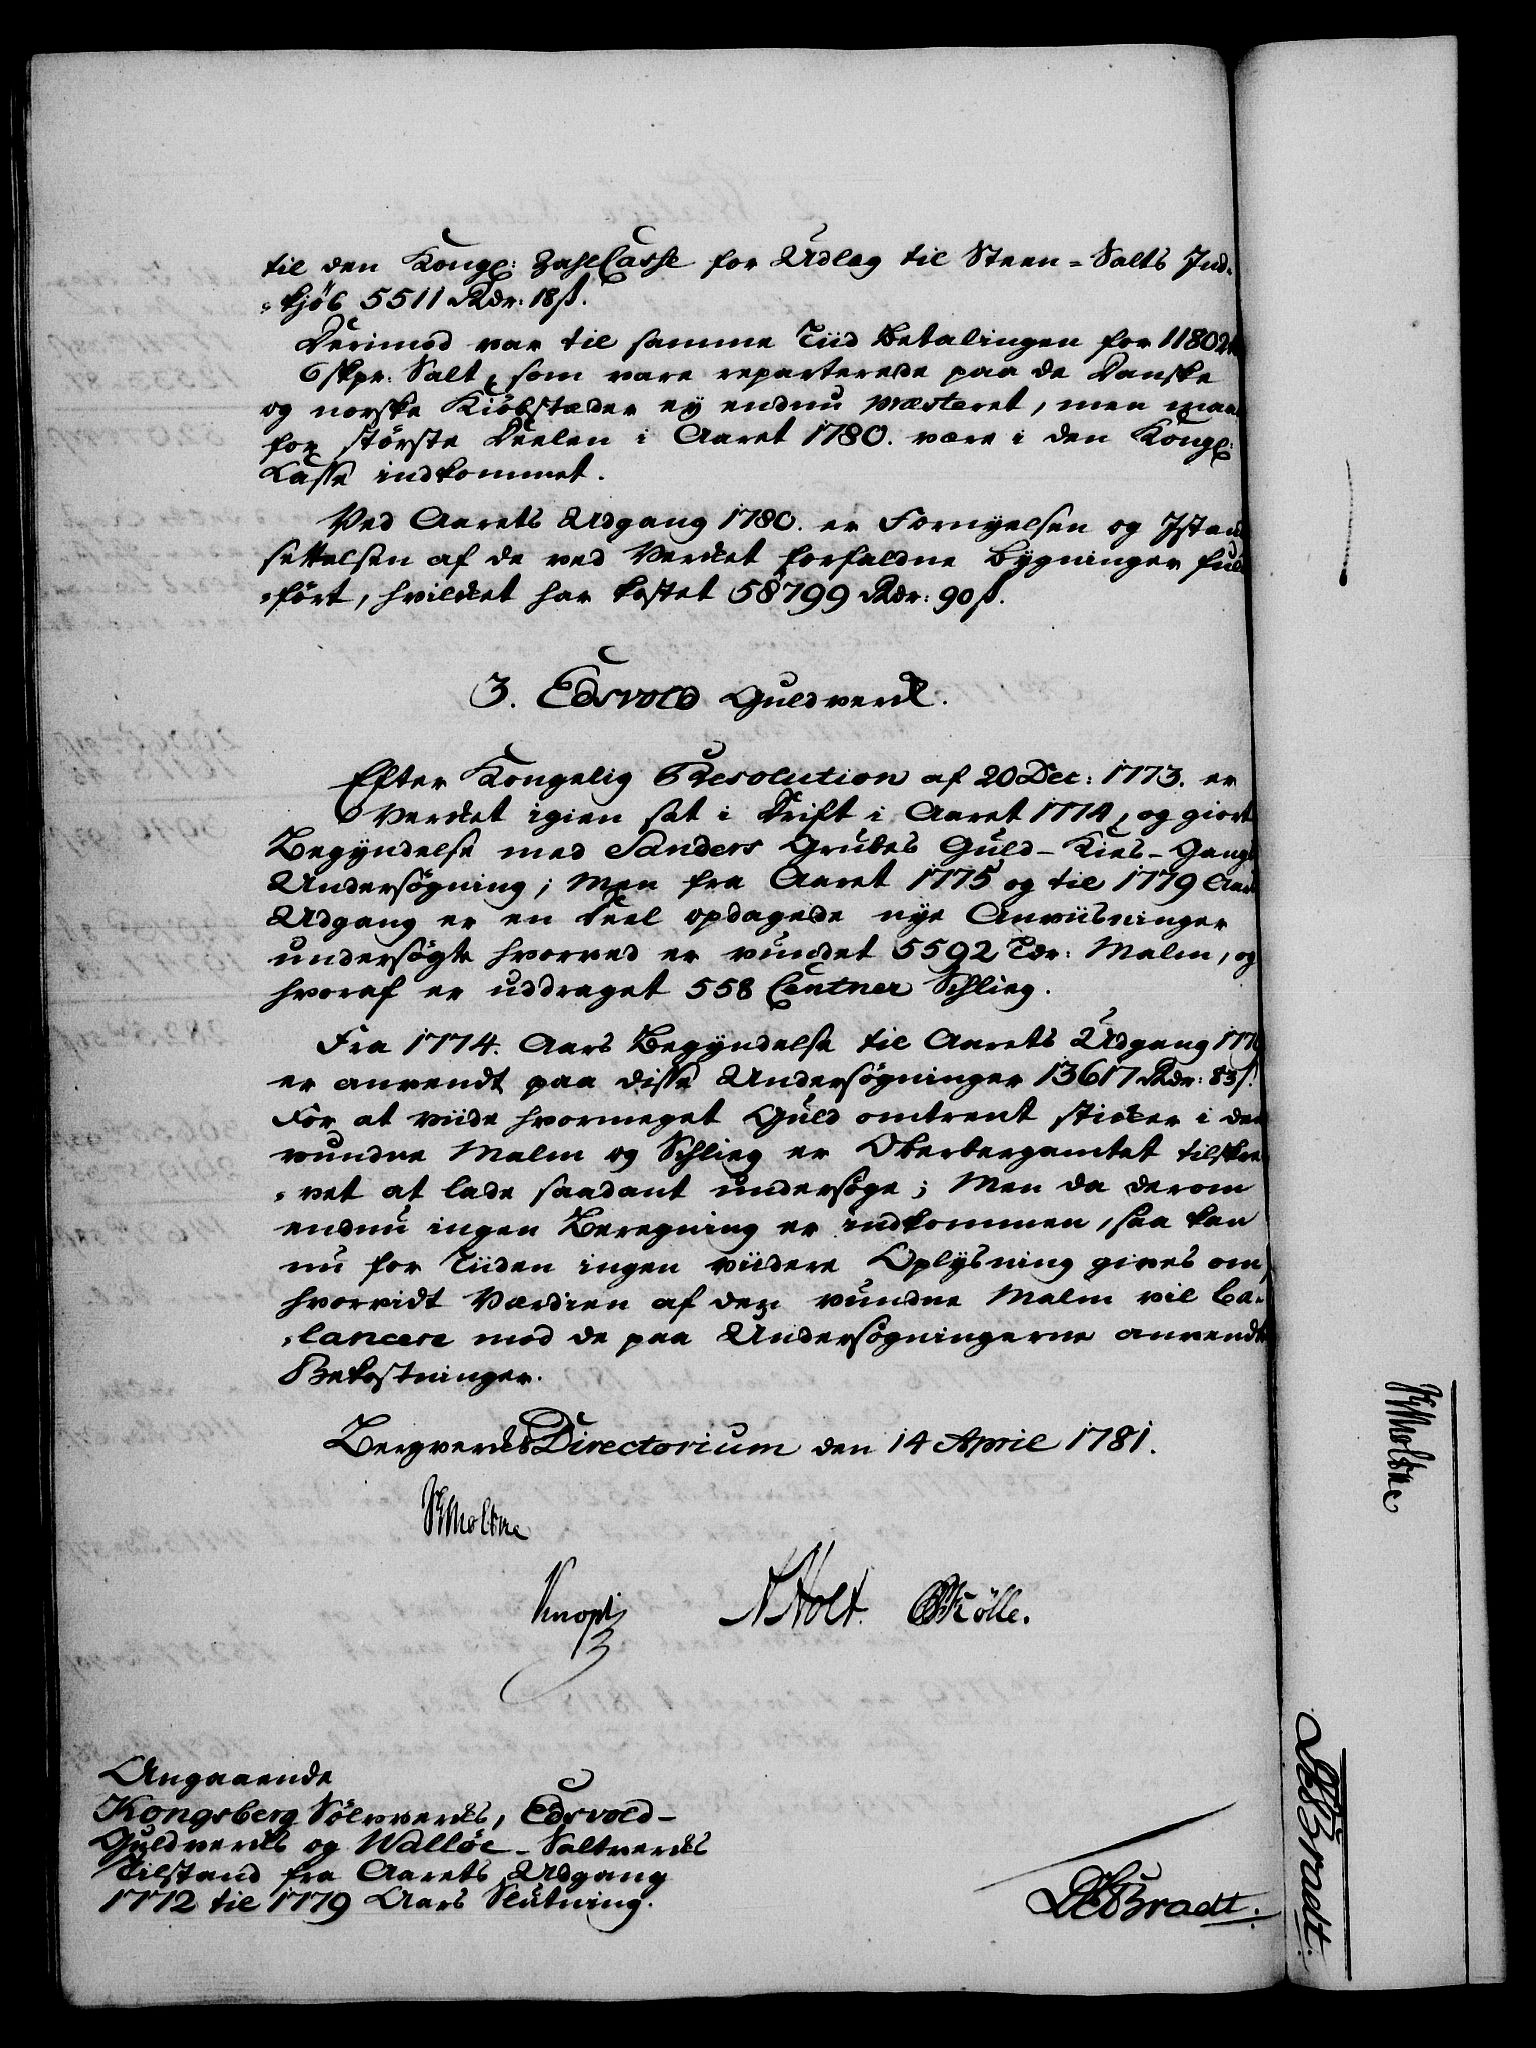 til den Kongl: ZahlCasse for Udlæg til Steen-Salts Ind-
-kjöb 5511 Rdr: 18 ß.
Derimod var til samme Tiid Betalingen for 11802
6 skpr: Salt, som vare reparterede paa de Danske
og norske Kiöbstæder ey endnu præsteret, men maae
for störste Deelen i Aaret 1780. være i den Kongl:
Casse indkommet.
Ved Aarets Udgang 1780. er Fornyelsen og Istand
settelsen af de ved Verket forfaldne Bygninger ful
-fört, hvilket har kostet 58799 Rdr: 90 ß.
3. Edsvold Guldverk.
Efter Kongelig Resolution af 20 Dec: 1773. er
Verket igien sat i Drift i Aaret 1774, og giort
Begyndelse med Sanders Grubes Guld-Kies-Gangs
Undersøgning; Men fra Aaret 1775 og til 1779 Aars
Udgang er en Deel opdagede nye Anviisninger
undersøgte hvorved er vundet 5592 Tdr: Malm, og
hvoraf er uddraget 558 Centner Schlieg.
Fra 1774. Aars Begyndelse til Aarets Udgang 177
er anvendt paa disse Undersøgninger 13617 Rdr: 83 ß.
For at viide hvormeget Guld omtrent sticker i den
vundne Malm og Schlieg er Oberbergamtet tilskre
-vet at lade saadant undersøge; Men da derom
endnu ingen Beregning er indkommen, saa kan
nu for Tiiden ingen viidere Oplysning gives om,
hvorvidt Værdien af den vundne Malm vil ba-
-lancere mod de paa Undersøgningerne anvendte
Bekostninger.
BergverksDirectorium den 14 April 1781.
Moltke
Knoph
Holt. Mölle.
Angaaende
Kongsberg Sölvverks, Edsvold-
Guldverks og Walløe-Saltverks
Tilstand fra Aarets Udgang
1772 til 1779 Aars Slutning.
Bradt.
Moltke
Bradt.